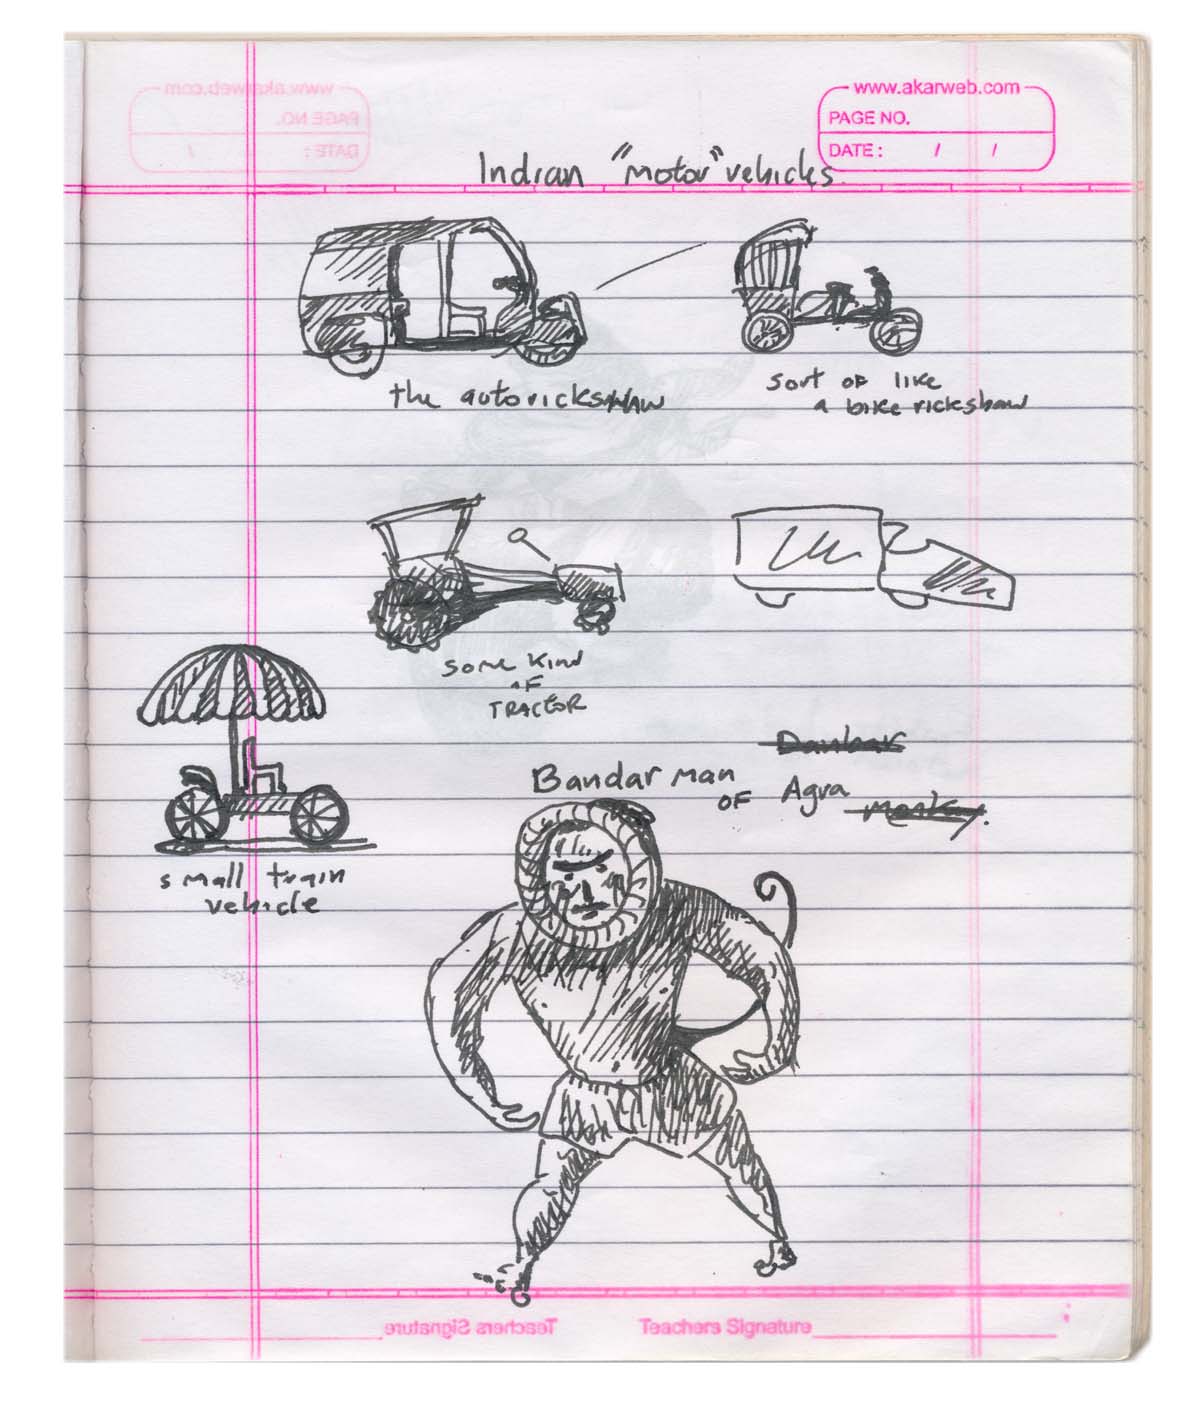 www.akarweb.com
PAGE NO.
DATE : / /
Indian "motor" vehicles.
the autorickshaw
sort of like
a bike rickshaw
some kind
of
TRACTOR
small train
vehicle
Danbar
Bandar man
OF Agra Monkey.
Teachers Signature